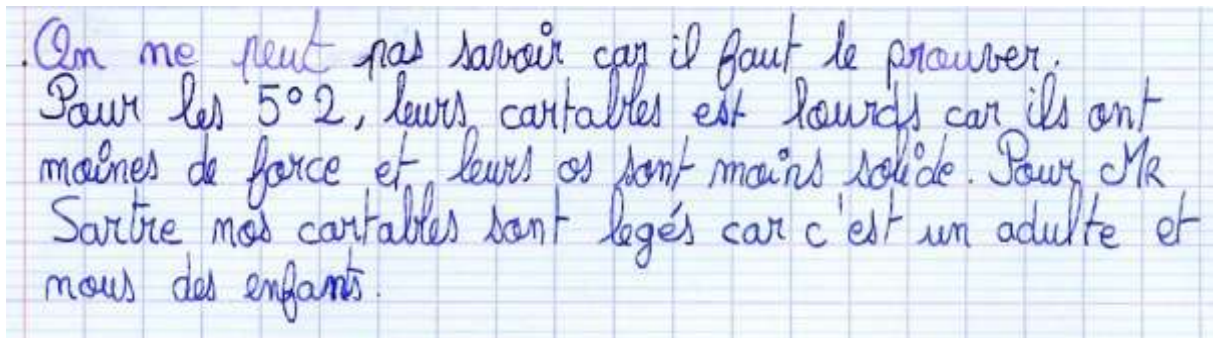 .On ne peut pas savoir car il faut le prouver.
Pour les 5°2, leurs cartables est lourds car ils ont
moines de force et leurs os sont moins solide. Pour MR
Sartre nos cartables sont legés car c'est un adulte et
nous des enfants.